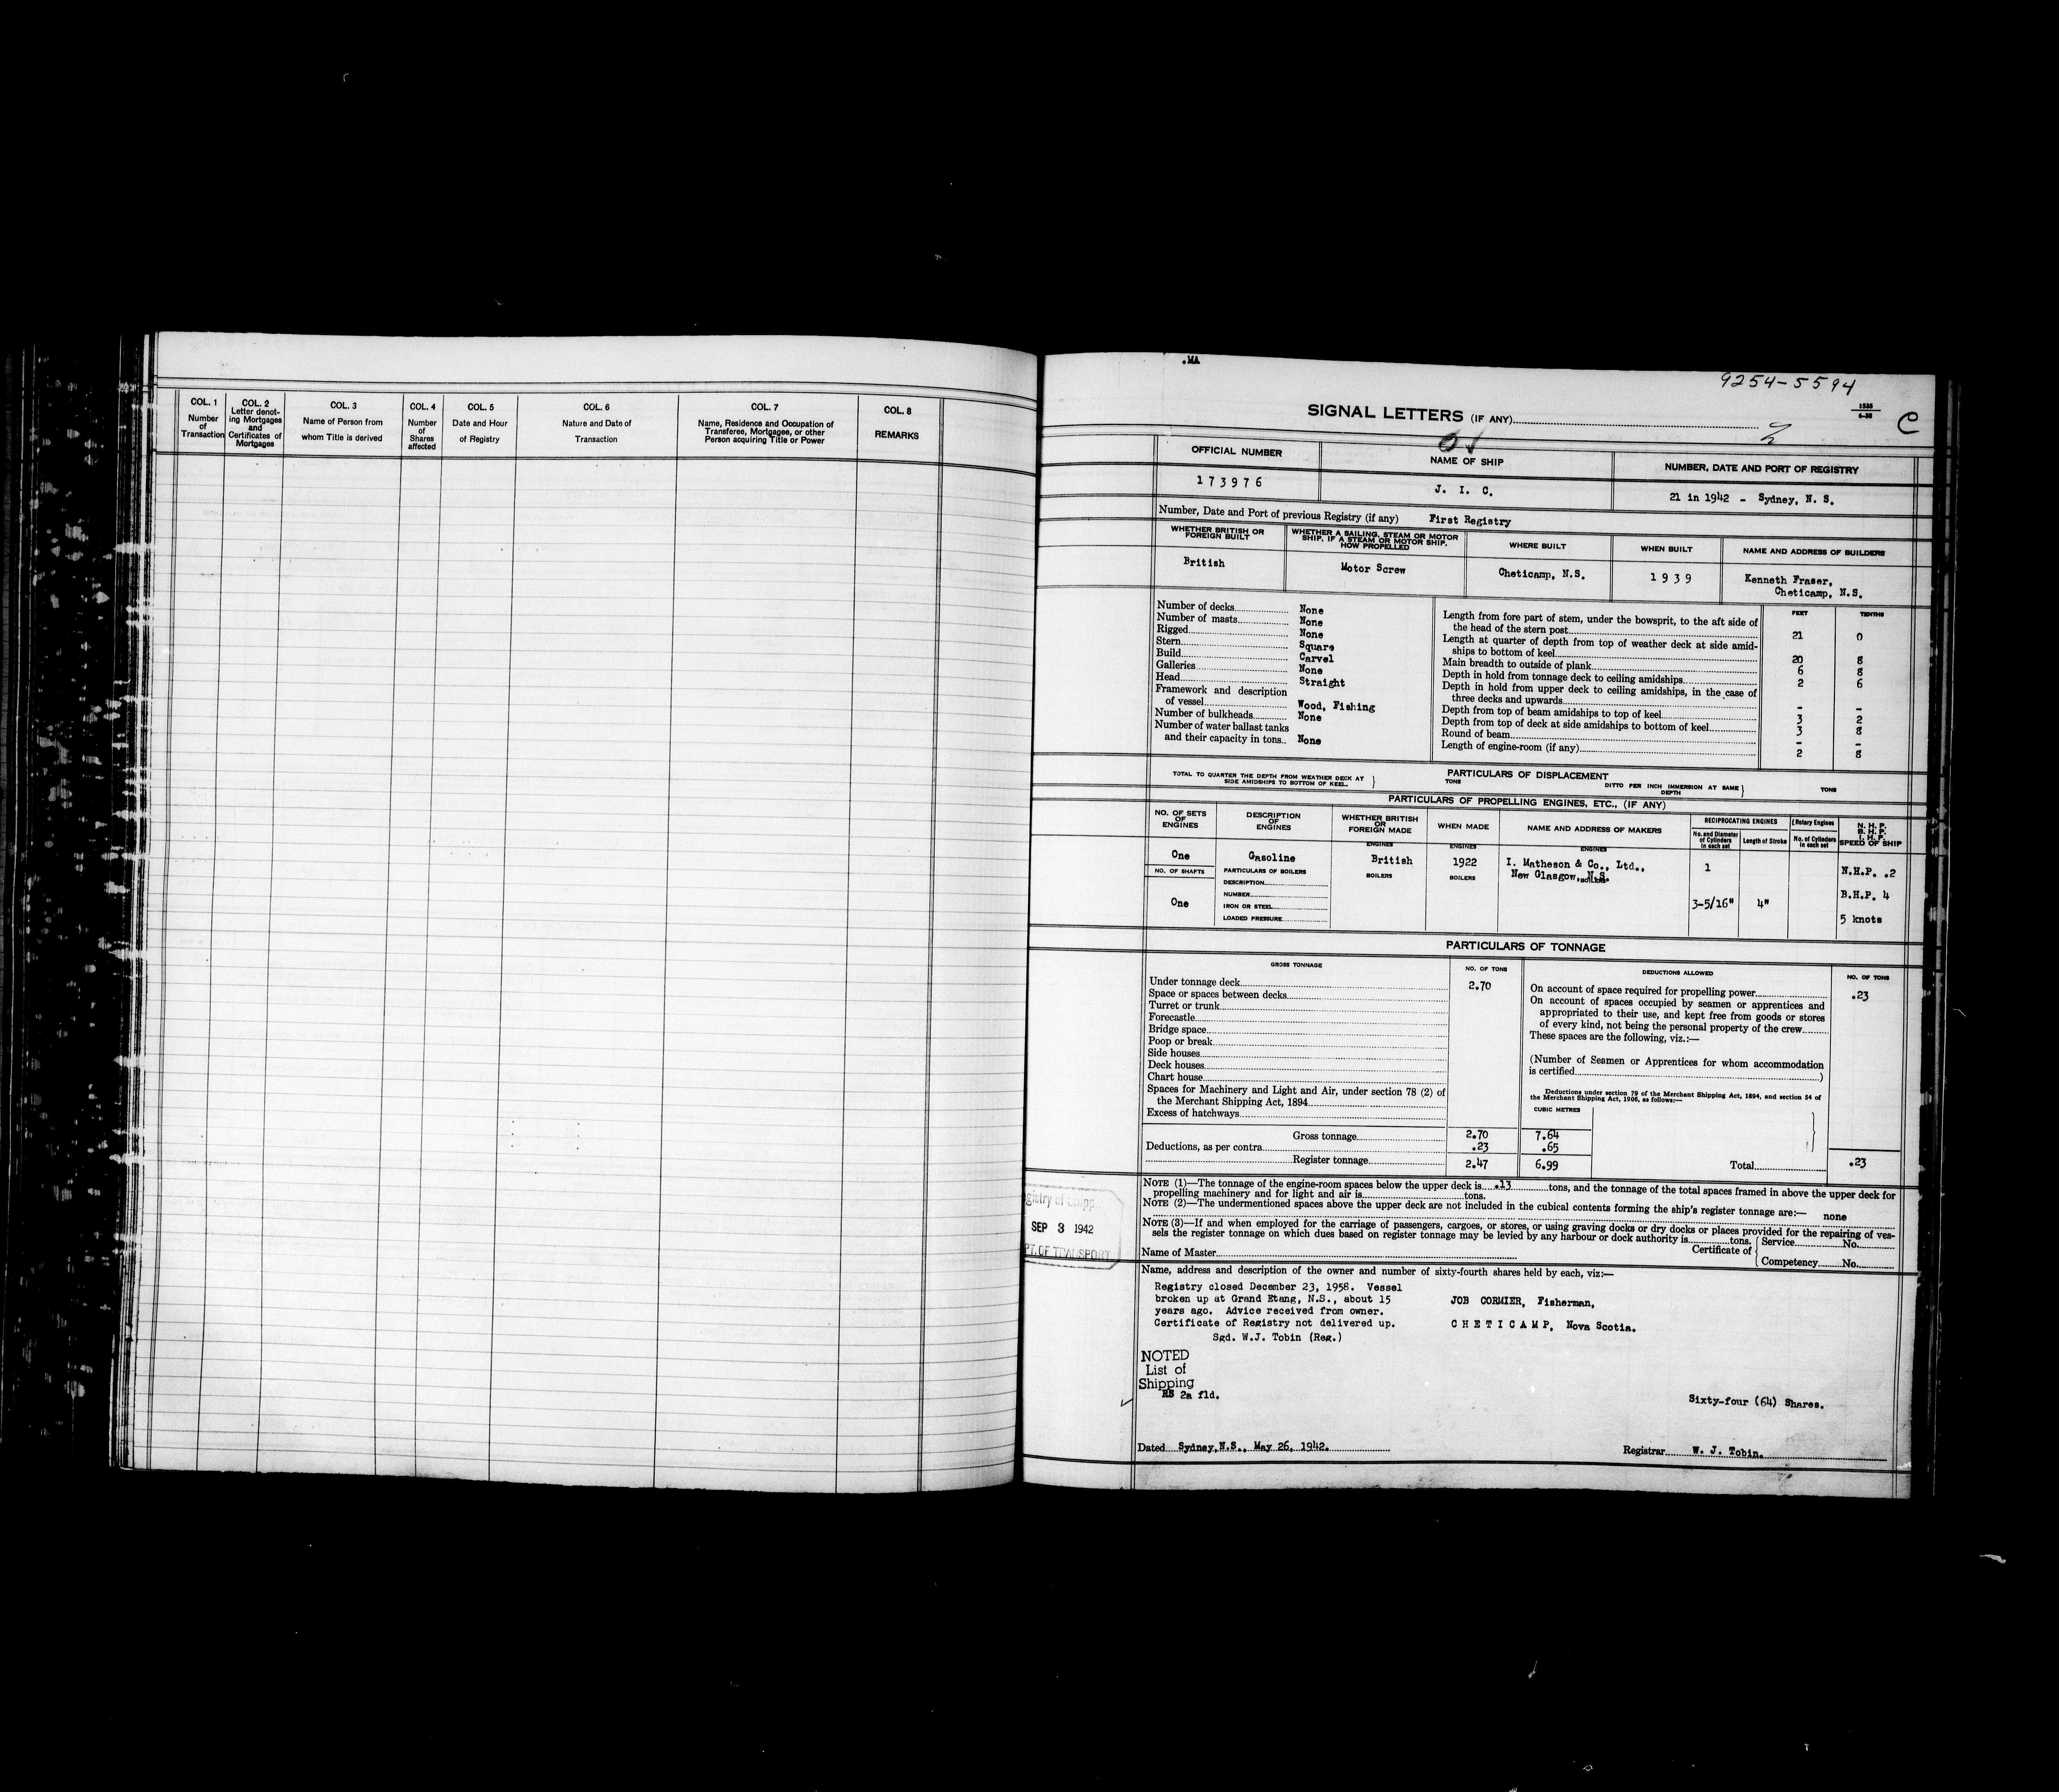 COL. 1
Number
of
Transaction
COL. 2
Letter denot-
ing Mortgages
and
Certificates of
Mortgages
COL. 3
Name of Person from
whom Title is derived
COL. 4
Number
of
Shares
affected
COL. 5
Date and Hour
of Registry
COL. 6
Nature and Date of
Transaction
COL. 7
Name, Residence and Occupation of
Transferee, Mortgagee, or other
Person acquiring Title or Power
COL. 8
REMARKS
.MA
9254-5594
SIGNAL LETTERS (IF ANY)
1535
6-38
C
OFFICIAL NUMBER
173976
NAME OF SHIP
J. I. C.
NUMBER, DATE AND PORT OF REGISTRY
21 in 1942 - Sydney, N. S.
Number, Date and Port of previous Registry (if any) First Registry
WHETHER BRITISH OR
FOREIGN BUILT
British
WHETHER A SAILING, STEAM OR MOTOR
SHIP, IF A STEAM OR MOTOR SHIP,
HOW PROPELLED
Motor Screw
WHERE BUILT
Cheticamp, N.S.
WHEN BUILT
1939
NAME AND ADDRESS OF BUILDERS
Kenneth Fraser,
Cheticamp, N.S.
Number of decks None
Number of masts None
Rigged None
Stern Square
Build Carvel
Galleries None
Head Straight
Framework and description
of vessel Wood, Fishing
Number of bulkheads None
Number of water ballast tanks
and their capacity in tons.. None
FEET TENTHS
Length from fore part of stem, under the bowsprit, to the aft side of
the head of the stern post 21 0
Length at quarter of depth from top of weather deck at side amid-
ships to bottom of keel 20 8
Main breadth to outside of plank 6 8
Depth in hold from tonnage deck to ceiling amidships 2 6
Depth in hold from upper deck to ceiling amidships, in the case of
three decks and upwards - -
Depth from top of beam amidships to top of keel 3 2
Depth from top of deck at side amidships to bottom of keel 3 8
Round of beam - -
Length of engine-room (if any) 2 8
PARTICULARS OF DISPLACEMENT
TOTAL TO QUARTER THE DEPTH FROM WEATHER DECK AT
SIDE AMIDSHIPS TO BOTTOM OF KEEL.
TONS
DITTO PER INCH IMMERSION AT SAME
DEPTH
TONS
PARTICULARS OF PROPELLING ENGINES, ETC., (IF ANY)
NO. OF SETS
OF
ENGINES
One
NO. OF SHAFTS
One
DESCRIPTION
OF
ENGINES
Gasoline
PARTICULARS OF BOILERS
DESCRIPTION
NUMBER
IRON OR STEEL
LOADED PRESSURE
WHETHER BRITISH
OR
FOREIGN MADE
ENGINES
British
BOILERS
WHEN MADE
ENGINES
1922
BOILERS
NAME AND ADDRESS OF MAKERS
ENGINES
I. Matheson & Co., Ltd.,
New Glasgow, N.S.
BOILERS
RECIPROCATING ENGINES
No. and Diameter
of Cylinders
in each set
1
3-5/16"
Length of Stroke
4"
Rotary Engines
No. of Cylinders
in each set
N. H. P.
B. H. P.
I. H. P.
SPEED OF SHIP
N.H.P. .2
B.H.P. 4
5 knots
PARTICULARS OF TONNAGE
GROSS TONNAGE NO. OF TONS
Under tonnage deck 2.70
Space or spaces between decks
Turret or trunk
Forecastle
Bridge space
Poop or break
Side houses
Deck houses
Chart house
Spaces for Machinery and Light and Air, under section 78 (2) of
the Merchant Shipping Act, 1894
Excess of hatchways
Gross tonnage 2.70 7.64
Deductions, as per contra .23 .65
Register tonnage 2.47 6.99
DEDUCTIONS ALLOWED NO. OF TONS
On account of space required for propelling power .23
On account of spaces occupied by seamen or apprentices and
appropriated to their use, and kept free from goods or stores
of every kind, not being the personal property of the crew
These spaces are the following, viz.:—
(Number of Seamen or Apprentices for whom accommodation
is certified)
Deductions under section 79 of the Merchant Shipping Act, 1894, and section 54 of
the Merchant Shipping Act, 1906, as follows:—
CUBIC METRES
Total .23
NOTE (1)—The tonnage of the engine-room spaces below the upper deck is .13 tons, and the tonnage of the total spaces framed in above the upper deck for
propelling machinery and for light and air is tons.
NOTE (2)—The undermentioned spaces above the upper deck are not included in the cubical contents forming the ship's register tonnage are:— none
NOTE (3)—If and when employed for the carriage of passengers, cargoes, or stores, or using graving docks or dry docks or places provided for the repairing of ves-
sels the register tonnage on which dues based on register tonnage may be levied by any harbour or dock authority is tons.
Name of Master
Certificate of
Service No.
Competency No.
SEP 3 1942
PT. OF TRANSPORT
Name, address and description of the owner and number of sixty-fourth shares held by each, viz:—
Registry closed December 23, 1958. Vessel
broken up at Grand Etang, N.S., about 15
years ago. Advice received from owner.
Certificate of Registry not delivered up.
Sgd. W.J. Tobin (Reg.)
JOB CORMIER, Fisherman,
CHETICAMP, Nova Scotia.
NOTED
List of
Shipping
RS 2a fld.
Sixty-four (64) Shares.
Dated Sydney, N.S., May 26, 1942.
Registrar W. J. Tobin.